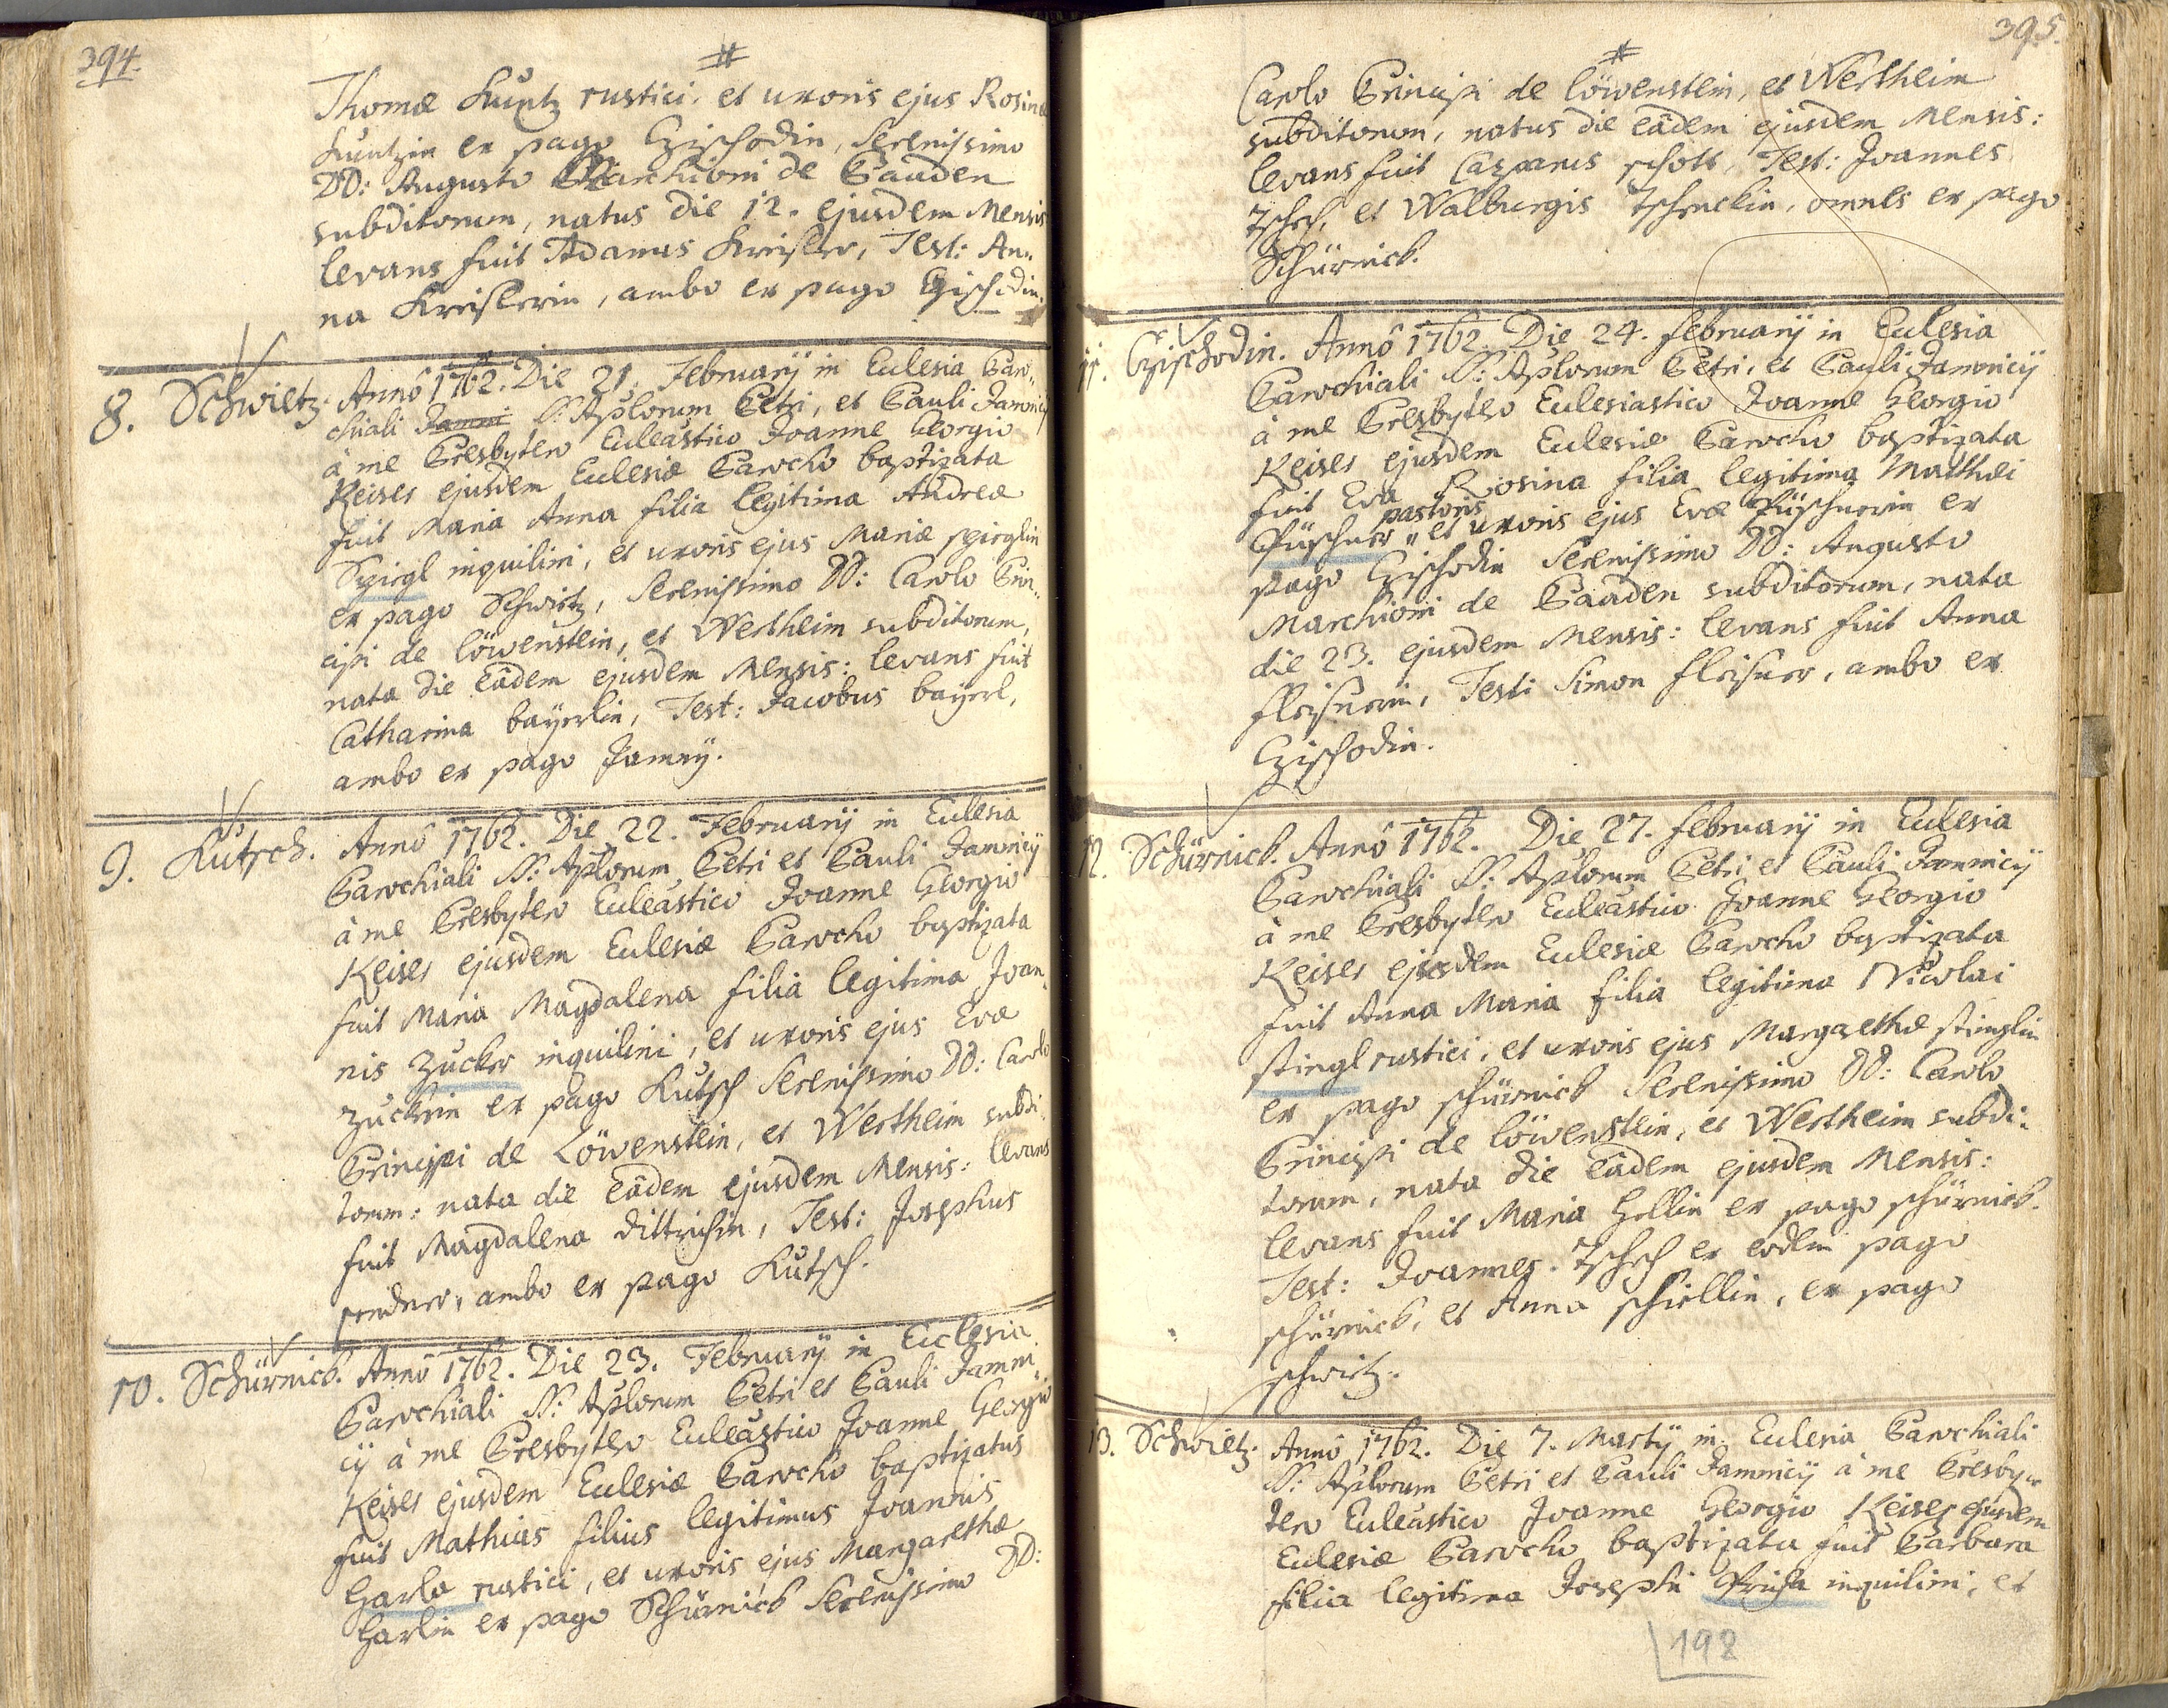 394.
#
Thomæ Kuntz rustici, et uxoris ejus Rosinæ
Kuntzin ex pago Czischodin, Serenissimo
DD: Augusto Marchioni de Baaden
subditorum, natus die 12. ejusdem Mensis
levans fuit Adamus Kreisler, Test: An„
na Kreislerin, ambo ex pago Czischodin.
8. Schwietz. Annô 1762. Die 21. Februarij in Ecclesia Paro„
chiali SS: Aplorum Petri, et Pauli Jamnicij
à me Presbytero Eccleâstico Joanne Georgio
Keiser ejusdem Ecclesiæ Parocho baptizata
fuit Maria Anna filia legitima Andreæ
Spiegl inquilini, et uxoris ejus Mariæ spieglin
ex pago Schwitz, Serenissimo DD: Carolo Prin„
cipi de löwenstein, et Wertheim subditorum,
nata die eâdem ejusdem Mensis: levans fuit
Catharina bayerlin, Test: Jacobus bayerl,
ambo ex pago Jamny.
9. Kutsch. Annô 1762. Die 22. Februarij in Ecclesia
Parochiali SS: Aplorum Petri et Pauli Jamnicij
à me Presbytero Eccleâstico Joanne Georgio
Keiser ejusdem Ecclesiæ Parocho baptizata
fuit Maria Magdalena filia legitima Joan„
nis Zucker inquilini, et uxoris ejus Evæ
Zuckrin ex pago Kutsch Serenissimo DD: Carolo
Principi de Löwenstein, et Wertheim subdi„
torum: nata die eâdem ejusdem Mensis: levans
fuit Magdalena dittrichin, Test: Josephus
ambo ex pago Kutsch.
10. Schürnick. Annô 1762. Die 23. Februarij in Ecclesia
Parochiali SS: Aplorum Petri et Pauli Jamni„
cij à me Presbytero Eccleâstico Joanne Georgio
Keiser ejusdem Ecclesiæ Parocho baptizatus
fuit Mathias filius legitimus Joannis
Harla rustici, et uxoris ejus Margarethæ
Harlin ex pago Schürnick Serenissimo DD:
395.
#
Carolo Principi de löwenstein, et Wertheim
subditorum, natus die eâdem ejusdem Mensis:
levans fuit Casparus schott, Test: Joannes
Tschech, et Walburgis omnes ex pago
Schürnick.
11. Czischodin. Annô 1762. Die 24. Februarij in Ecclesia
Parochiali SS: Aplorum Petri, et Pauli Jamnicij
à me Presbytero Ecclesiastico Joanne Georgio
Keiser ejusdem Ecclesiæ Parocho baptizata
fuit Eva Rosina filia legitima Matthæi
pastoris
Püschner „ et uxoris ejus Evæ Püschnerin ex
pago Czischodin Serenissimo DD: Augusto
Marchioni de Baaden subditorum, nata
die 23. ejusdem Mensis: levans fuit Anna
fleisnerin, Test: Simon fleisner, ambo ex
Czischodin.
12. Schürnick. Annô 1762. Die 27. Februarij in Ecclesia
Parochiali SS: Aplorum Petri et Pauli Jamnicij
à me Presbytero Eccleâstico Joanne Georgio
Keiser ejusdem Ecclesiæ Parocho baptizata
fuit Anna Maria filia legitima Nicolai
stingl rustici, et uxoris ejus Margarethæ stinglin
ex pago schürnick Serenissimo DD: Carolo
Principi de löwenstein, et Wertheim subdi„
torum, nata die eâdem ejusdem Mensis:
levans fuit Maria Hellin ex pago schürnick.
Test: Joannes Tschech ex eodem pago
schürnick, et Anna ex pago
schwitz.
13. Schwietz. Annô 1762. Die 7. Martij in Ecclesia Parochiali
SS: Aplorum Petri et Pauli Jamnicij à me Presby„
tero Eccleâstico Joanne Georgio Keiser ejusdem
Ecclesiæ Parocho baptizata fuit Barbara
filia legitima Josephi inquilini, et
198